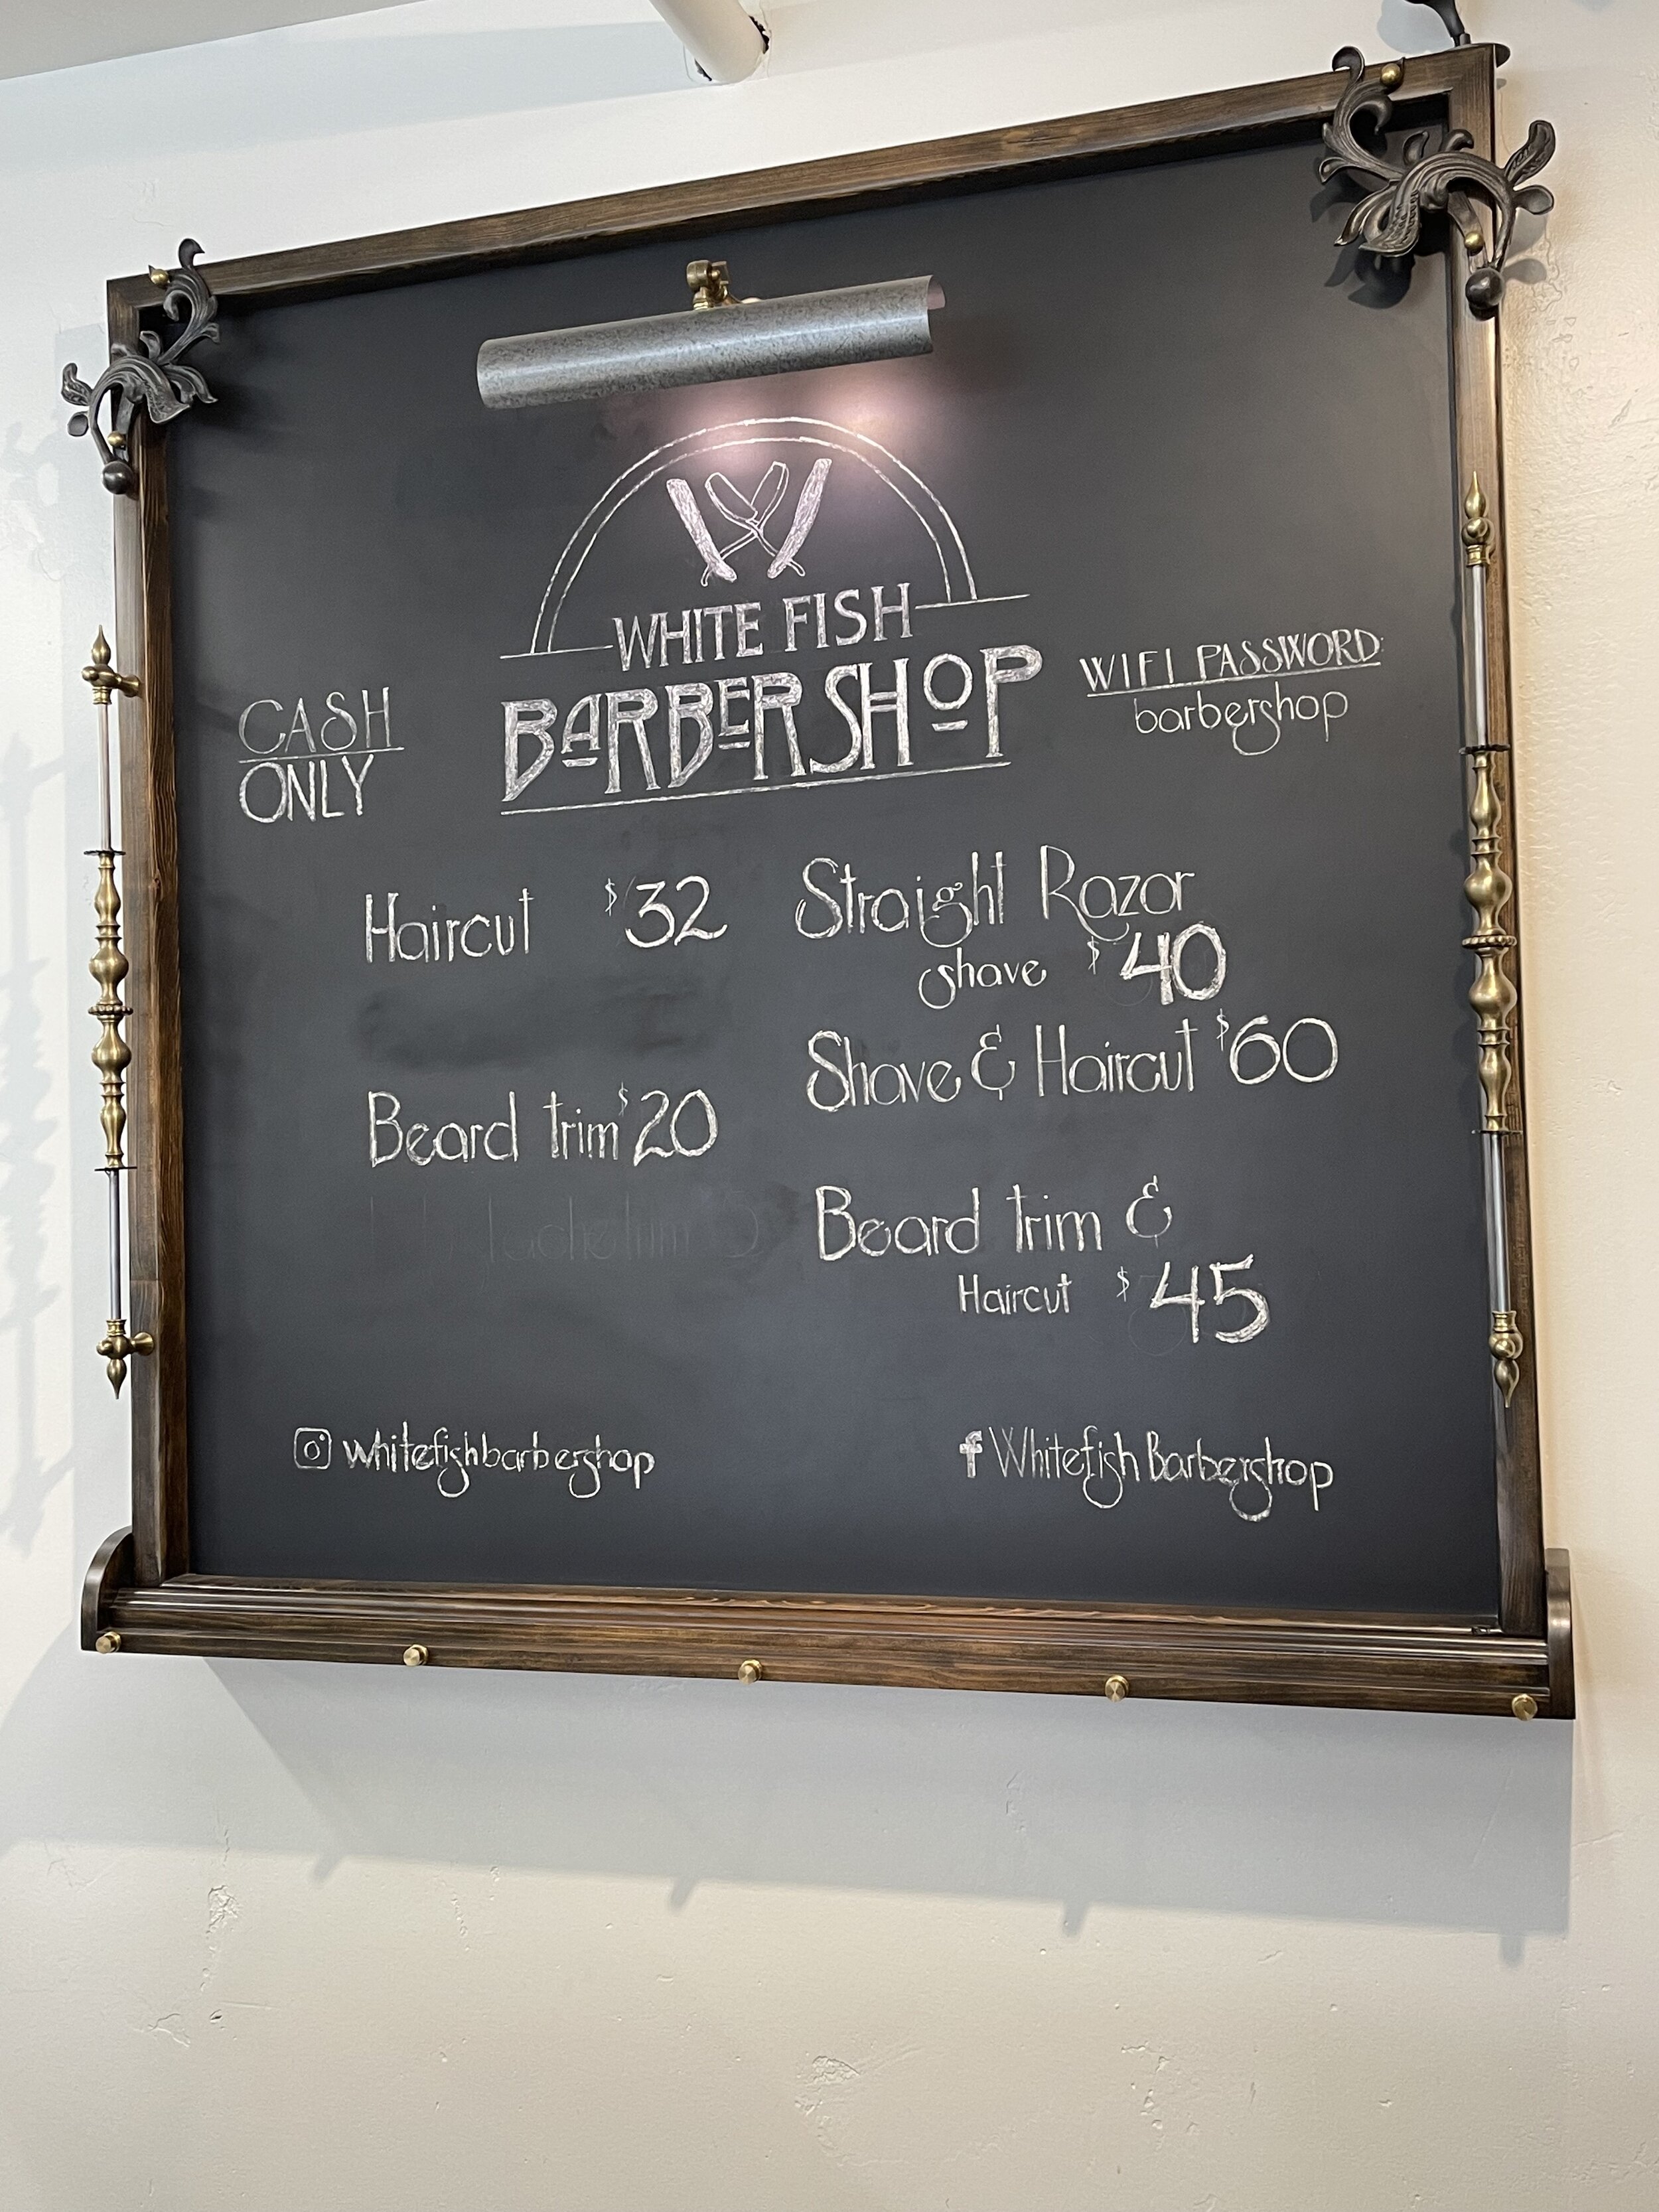 WHITE FISH
BARBERSHOP
CASH
ONLY
WIFI PASSWORD:
barbershop
Haircut $32
Beard trim $20
Straight Razor
shave $40
Shave & Haircut $60
Beard trim &
Haircut $45
whitefishbarbershop
f Whitefish Barbershop